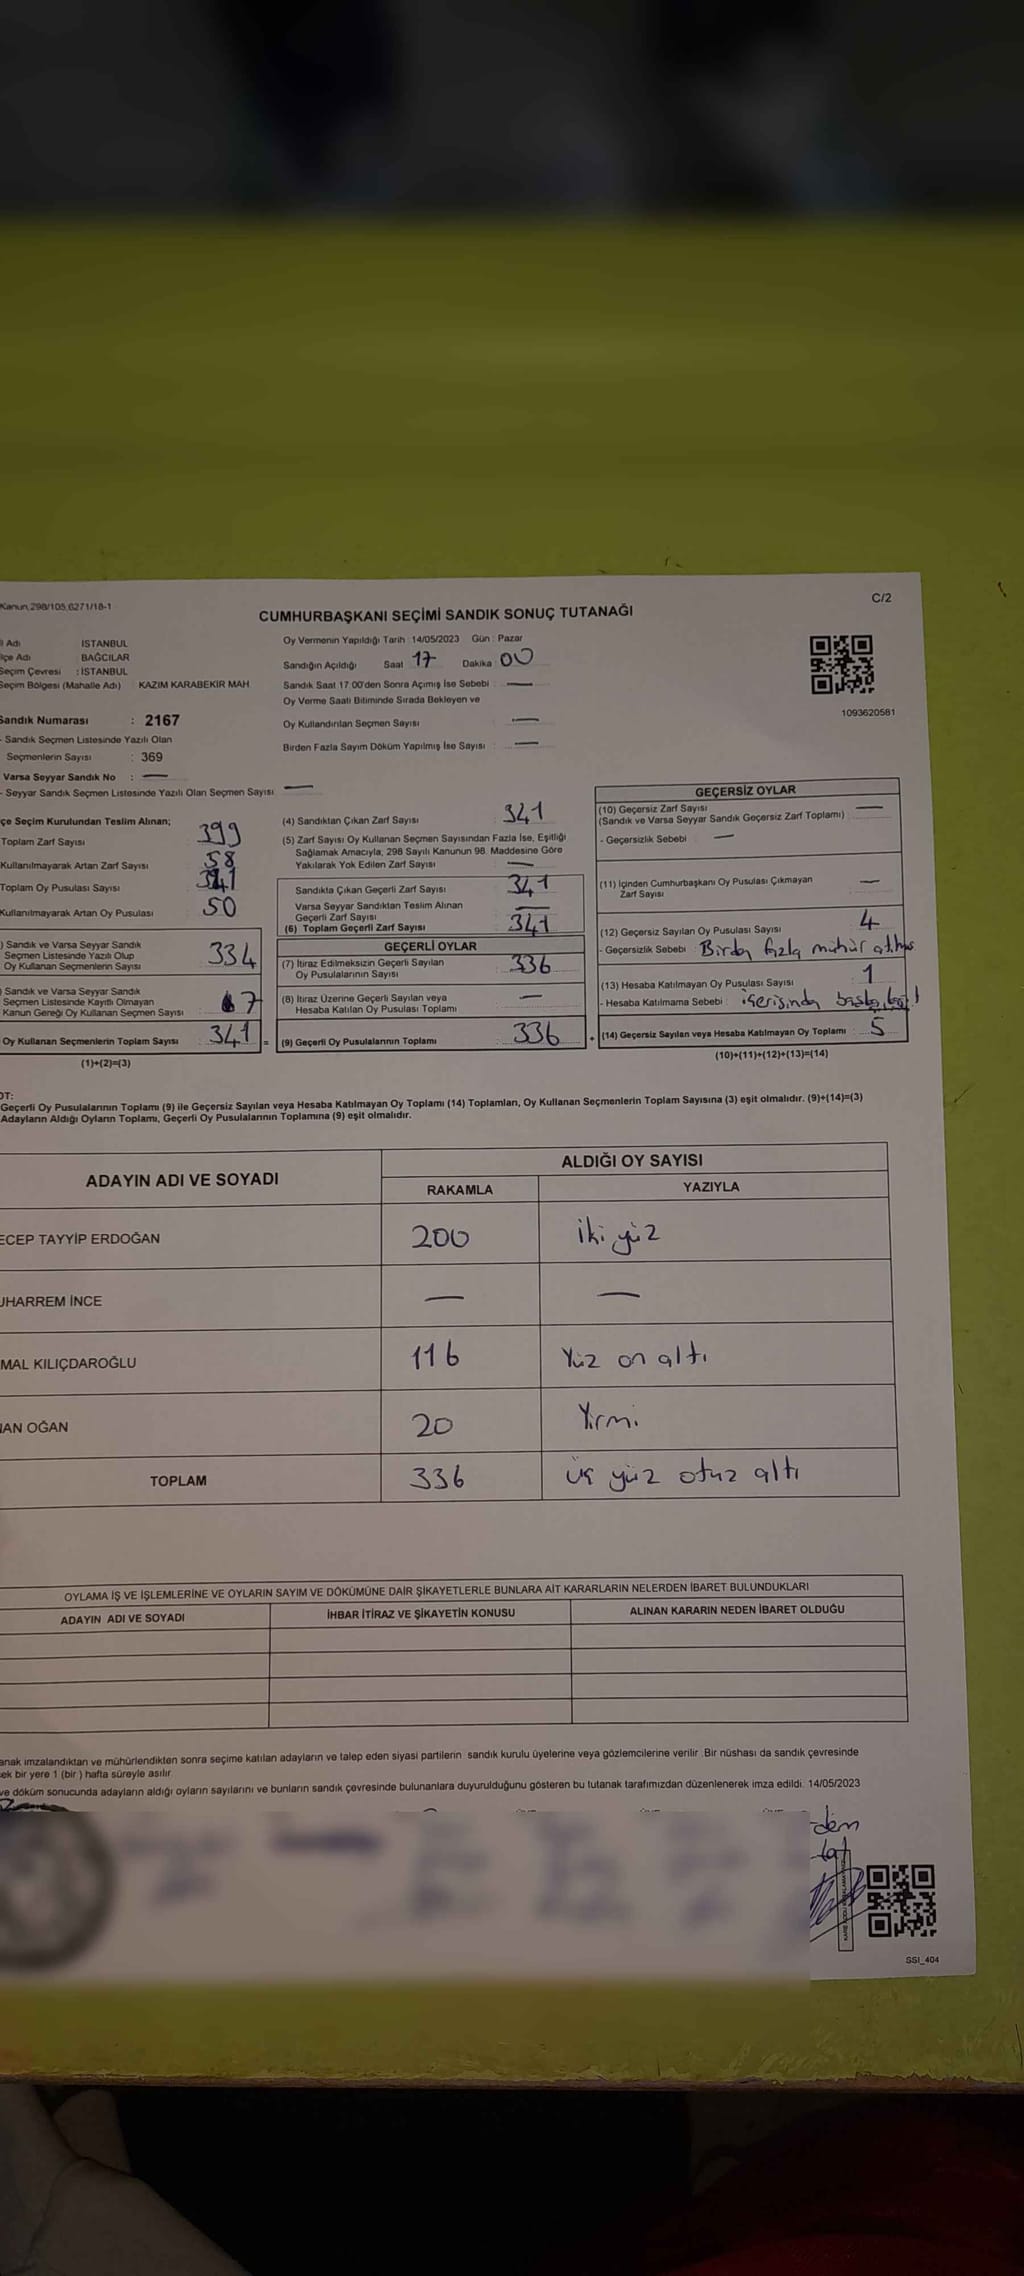 Kanun,298/105,6271/18-1
C/2
CUMHURBAŞKANI SEÇİMİ SANDIK SONUÇ TUTANAĞI
Adı İSTANBUL
çe Adı BAĞCILAR
Seçim Çevresi : İSTANBUL
Seçim Bölgesi (Mahalle Adı) KAZIM KARABEKİR MAH
Sandık Numarası : 2167
- Sandık Seçmen Listesinde Yazılı Olan
Seçmenlerin Sayısı : 369
Varsa Seyyar Sandık No : —
- Seyyar Sandık Seçmen Listesinde Yazılı Olan Seçmen Sayısı —
Oy Vermenin Yapıldığı Tarih : 14/05/2023 Gün : Pazar
Sandığın Açıldığı Saat 17 Dakika : 00
Sandık Saat 17:00'den Sonra Açımış İse Sebebi : —
Oy Verme Saati Bitiminde Sırada Bekleyen ve
Oy Kullandırılan Seçmen Sayısı —
Birden Fazla Sayım Döküm Yapılmış İse Sayısı : —
1093620581
çe Seçim Kurulundan Teslim Alınan;
Toplam Zarf Sayısı 399
Kullanılmayarak Artan Zarf Sayısı 58
Toplam Oy Pusulası Sayısı
Kullanılmayarak Artan Oy Pusulası 50
) Sandık ve Varsa Seyyar Sandık
Seçmen Listesinde Yazılı Olup
Oy Kullanan Seçmenlerin Sayısı 334
) Sandık ve Varsa Seyyar Sandık
Seçmen Listesinde Kayıtlı Olmayan
Kanun Gereği Oy Kullanan Seçmen Sayısı 7
Oy Kullanan Seçmenlerin Toplam Sayısı : 341 =
(1)+(2)=(3)
(4) Sandıktan Çıkan Zarf Sayısı 341
(5) Zarf Sayısı Oy Kullanan Seçmen Sayısından Fazla İse, Eşitliği
Sağlamak Amacıyla, 298 Sayılı Kanunun 98. Maddesine Göre
Yakılarak Yok Edilen Zarf Sayısı —
Sandıkta Çıkan Geçerli Zarf Sayısı 341
Varsa Seyyar Sandıktan Teslim Alınan
Geçerli Zarf Sayısı —
(6) Toplam Geçerli Zarf Sayısı 341
GEÇERLİ OYLAR
(7) İtiraz Edilmeksizin Geçerli Sayılan
Oy Pusulalarının Sayısı 336
(8) İtiraz Üzerine Geçerli Sayılan veya
Hesaba Katılan Oy Pusulası Toplamı —
(9) Geçerli Oy Pusulalarının Toplamı 336 +
GEÇERSİZ OYLAR
(10) Geçersiz Zarf Sayısı —
(Sandık ve Varsa Seyyar Sandık Geçersiz Zarf Toplamı)
- Geçersizlik Sebebi : —
(11) İçinden Cumhurbaşkanı Oy Pusulası Çıkmayan
Zarf Sayısı —
(12) Geçersiz Sayılan Oy Pusulası Sayısı 4
- Geçersizlik Sebebi : Birden fazla mühür
(13) Hesaba Katılmayan Oy Pusulası Sayısı 1
- Hesaba Katılmama Sebebi : içerisinden
(14) Geçersiz Sayılan veya Hesaba Katılmayan Oy Toplamı 5
(10)+(11)+(12)+(13)=(14)
OT:
Geçerli Oy Pusulalarının Toplamı (9) ile Geçersiz Sayılan veya Hesaba Katılmayan Oy Toplamı (14) Toplamları, Oy Kullanan Seçmenlerin Toplam Sayısına (3) eşit olmalıdır. (9)+(14)=(3)
Adayların Aldığı Oyların Toplamı, Geçerli Oy Pusulalarının Toplamına (9) eşit olmalıdır.
ADAYIN ADI VE SOYADI ALDIĞI OY SAYISI
RAKAMLA YAZIYLA
ECEP TAYYİP ERDOĞAN 200 iki yüz
UHARREM İNCE — —
MAL KILIÇDAROĞLU 116 Yüz on altı
NAN OĞAN 20 Yirmi
TOPLAM 336 üç yüz otuz altı
OYLAMA İŞ VE İŞLEMLERİNE VE OYLARIN SAYIM VE DÖKÜMÜNE DAİR ŞİKAYETLERLE BUNLARA AİT KARARLARIN NELERDEN İBARET BULUNDUKLARI
ADAYIN ADI VE SOYADI İHBAR İTİRAZ VE ŞİKAYETİN KONUSU ALINAN KARARIN NEDEN İBARET OLDUĞU
anak imzalandıktan ve mühürlendikten sonra seçime katılan adayların ve talep eden siyasi partilerin sandık kurulu üyelerine veya gözlemcilerine verilir. Bir nüshası da sandık çevresinde
ek bir yere 1 (bir) hafta süreyle asılır.
ve döküm sonucunda adayların aldığı oyların sayılarını ve bunların sandık çevresinde bulunanlara duyurulduğunu gösteren bu tutanak tarafımızdan düzenlenerek imza edildi. 14/05/2023
SSI_404